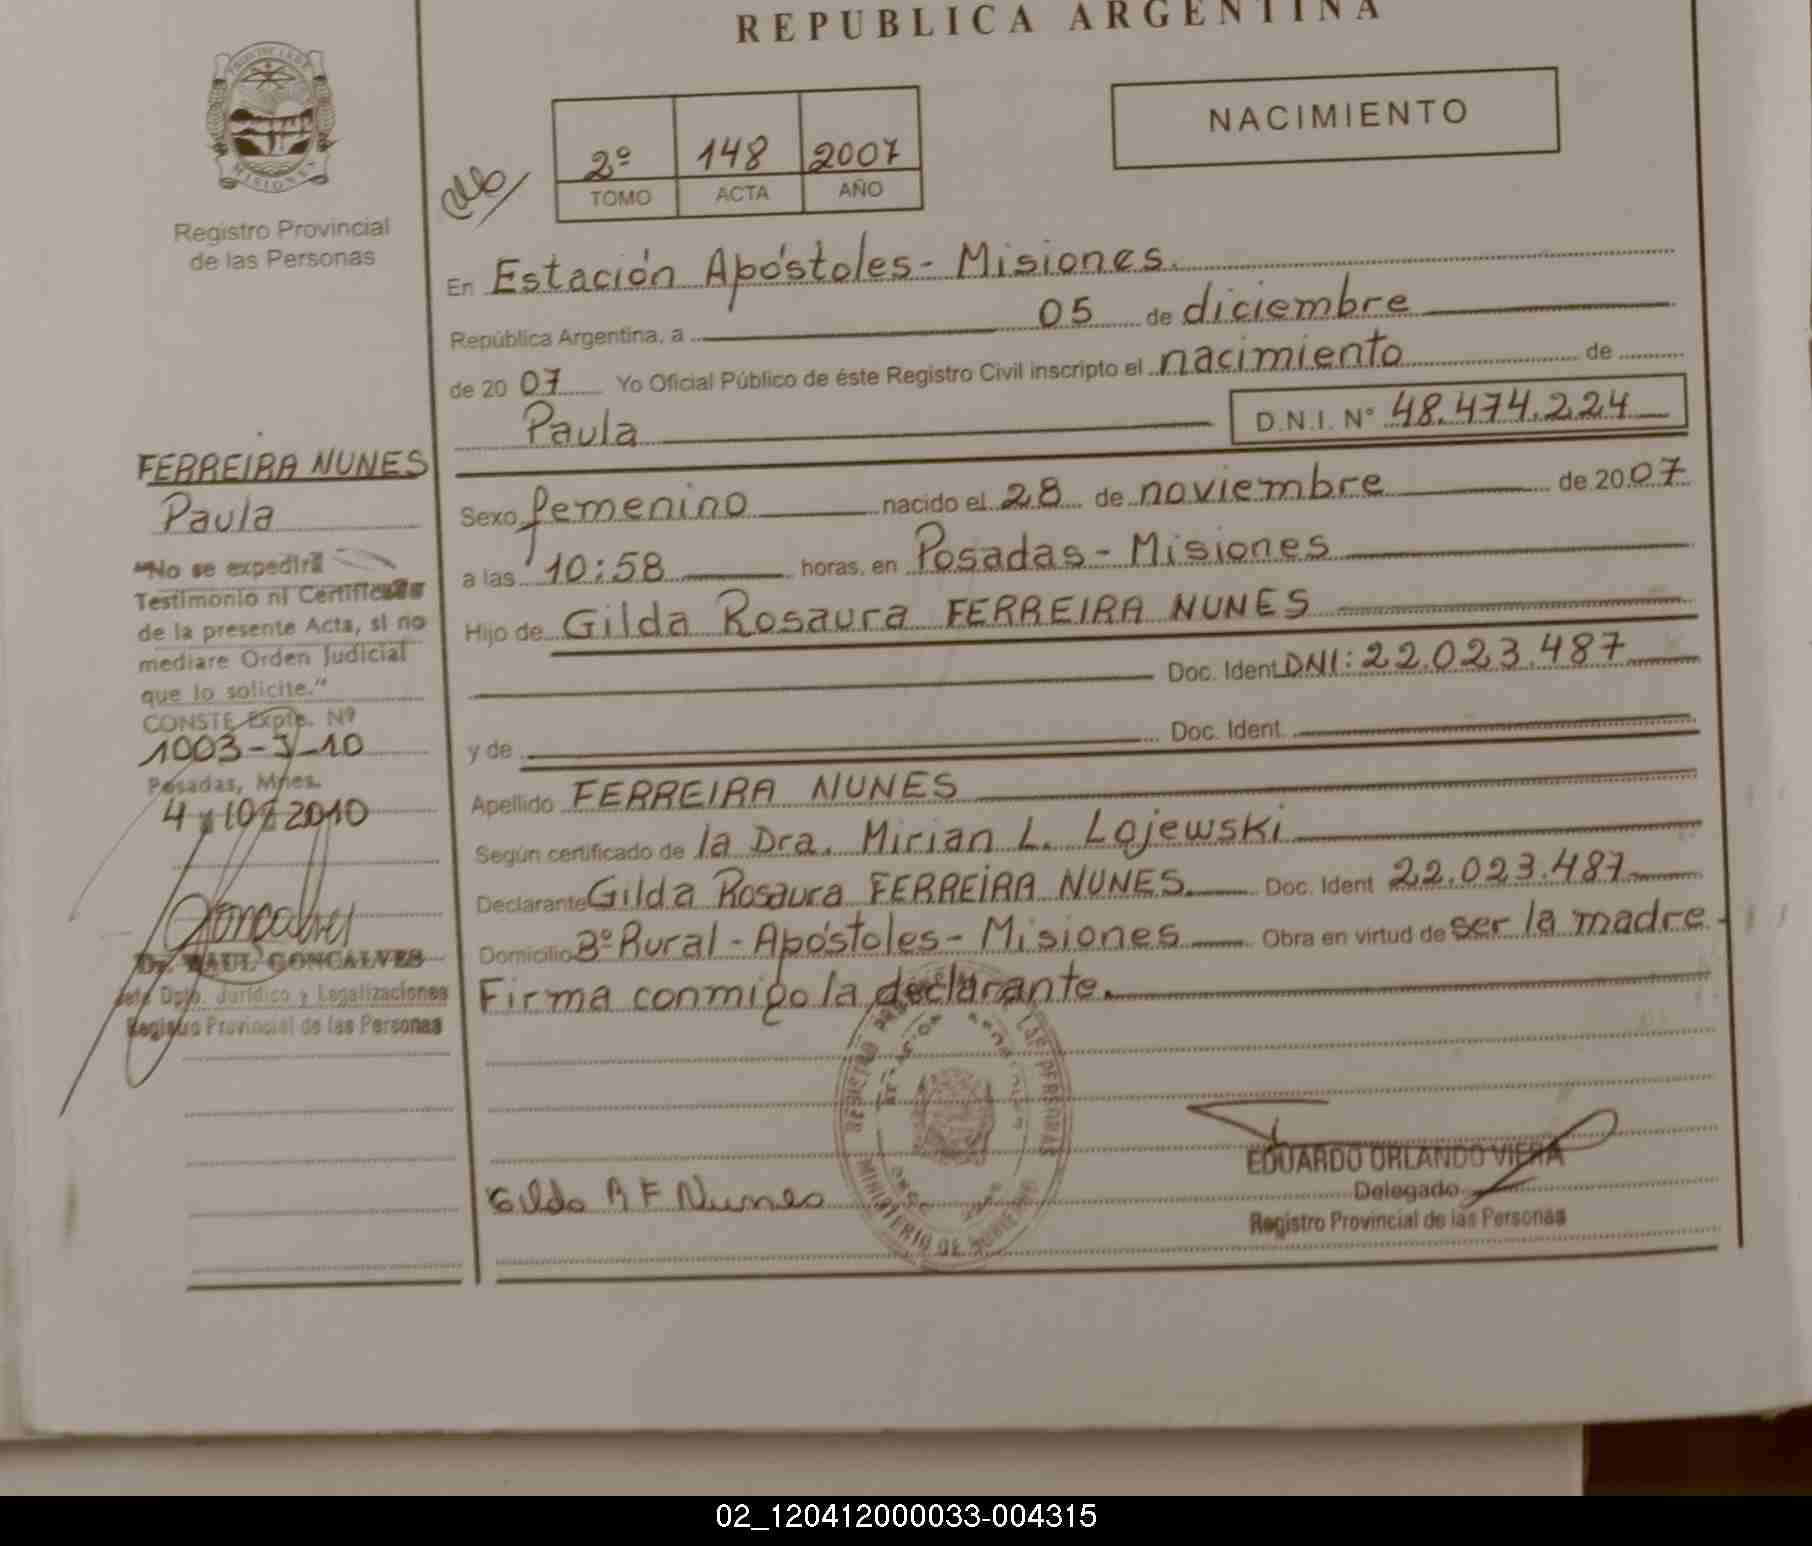 REPUBLICA ARGENTINA
NACIMIENTO
2º 148 2007
TOMO ACTA AÑO
MISIONES
Registro Provincial
de las Personas
En Estación Apóstoles - Misiones.
República Argentina, a 05 de diciembre
de 20 07 Yo Oficial Público de éste Registro Civil inscripto el nacimiento de
Paula D.N.I. Nº 48.474.224
Sexo femenino nacido el 28 de noviembre de 20 07
a las 10:58 horas, en Posadas - Misiones
Hijo de Gilda Rosaura FERREIRA NUNES
Doc. Ident. DNI: 22.023.487
y de Doc. Ident.
Apellido FERREIRA NUNES
Según certificado de la Dra. Mirian L. Lojewski
Declarante Gilda Rosaura FERREIRA NUNES. Doc. Ident 22.023.487
Domicilio Bº Rural - Apóstoles - Misiones Obra en virtud de ser la madre.
Firma conmigo la declarante.
FERREIRA NUNES
Paula
"No se expedirá
Testimonio ni Certificado
de la presente Acta, si no
mediare Orden Judicial
que lo solicite."
CONSTE Expte. Nº
1003-J-10
Posadas, Mnes.
4 10 2010
Goncalves
Dr. RAUL GONCALVES
Jefe Dpto. Jurídico y Legalizaciones
Registro Provincial de las Personas
Gilda R F Nunes
MINISTERIO DE GOBIERNO
EDUARDO ORLANDO VIERA
Delegado
Registro Provincial de las Personas
02_120412000033-004315